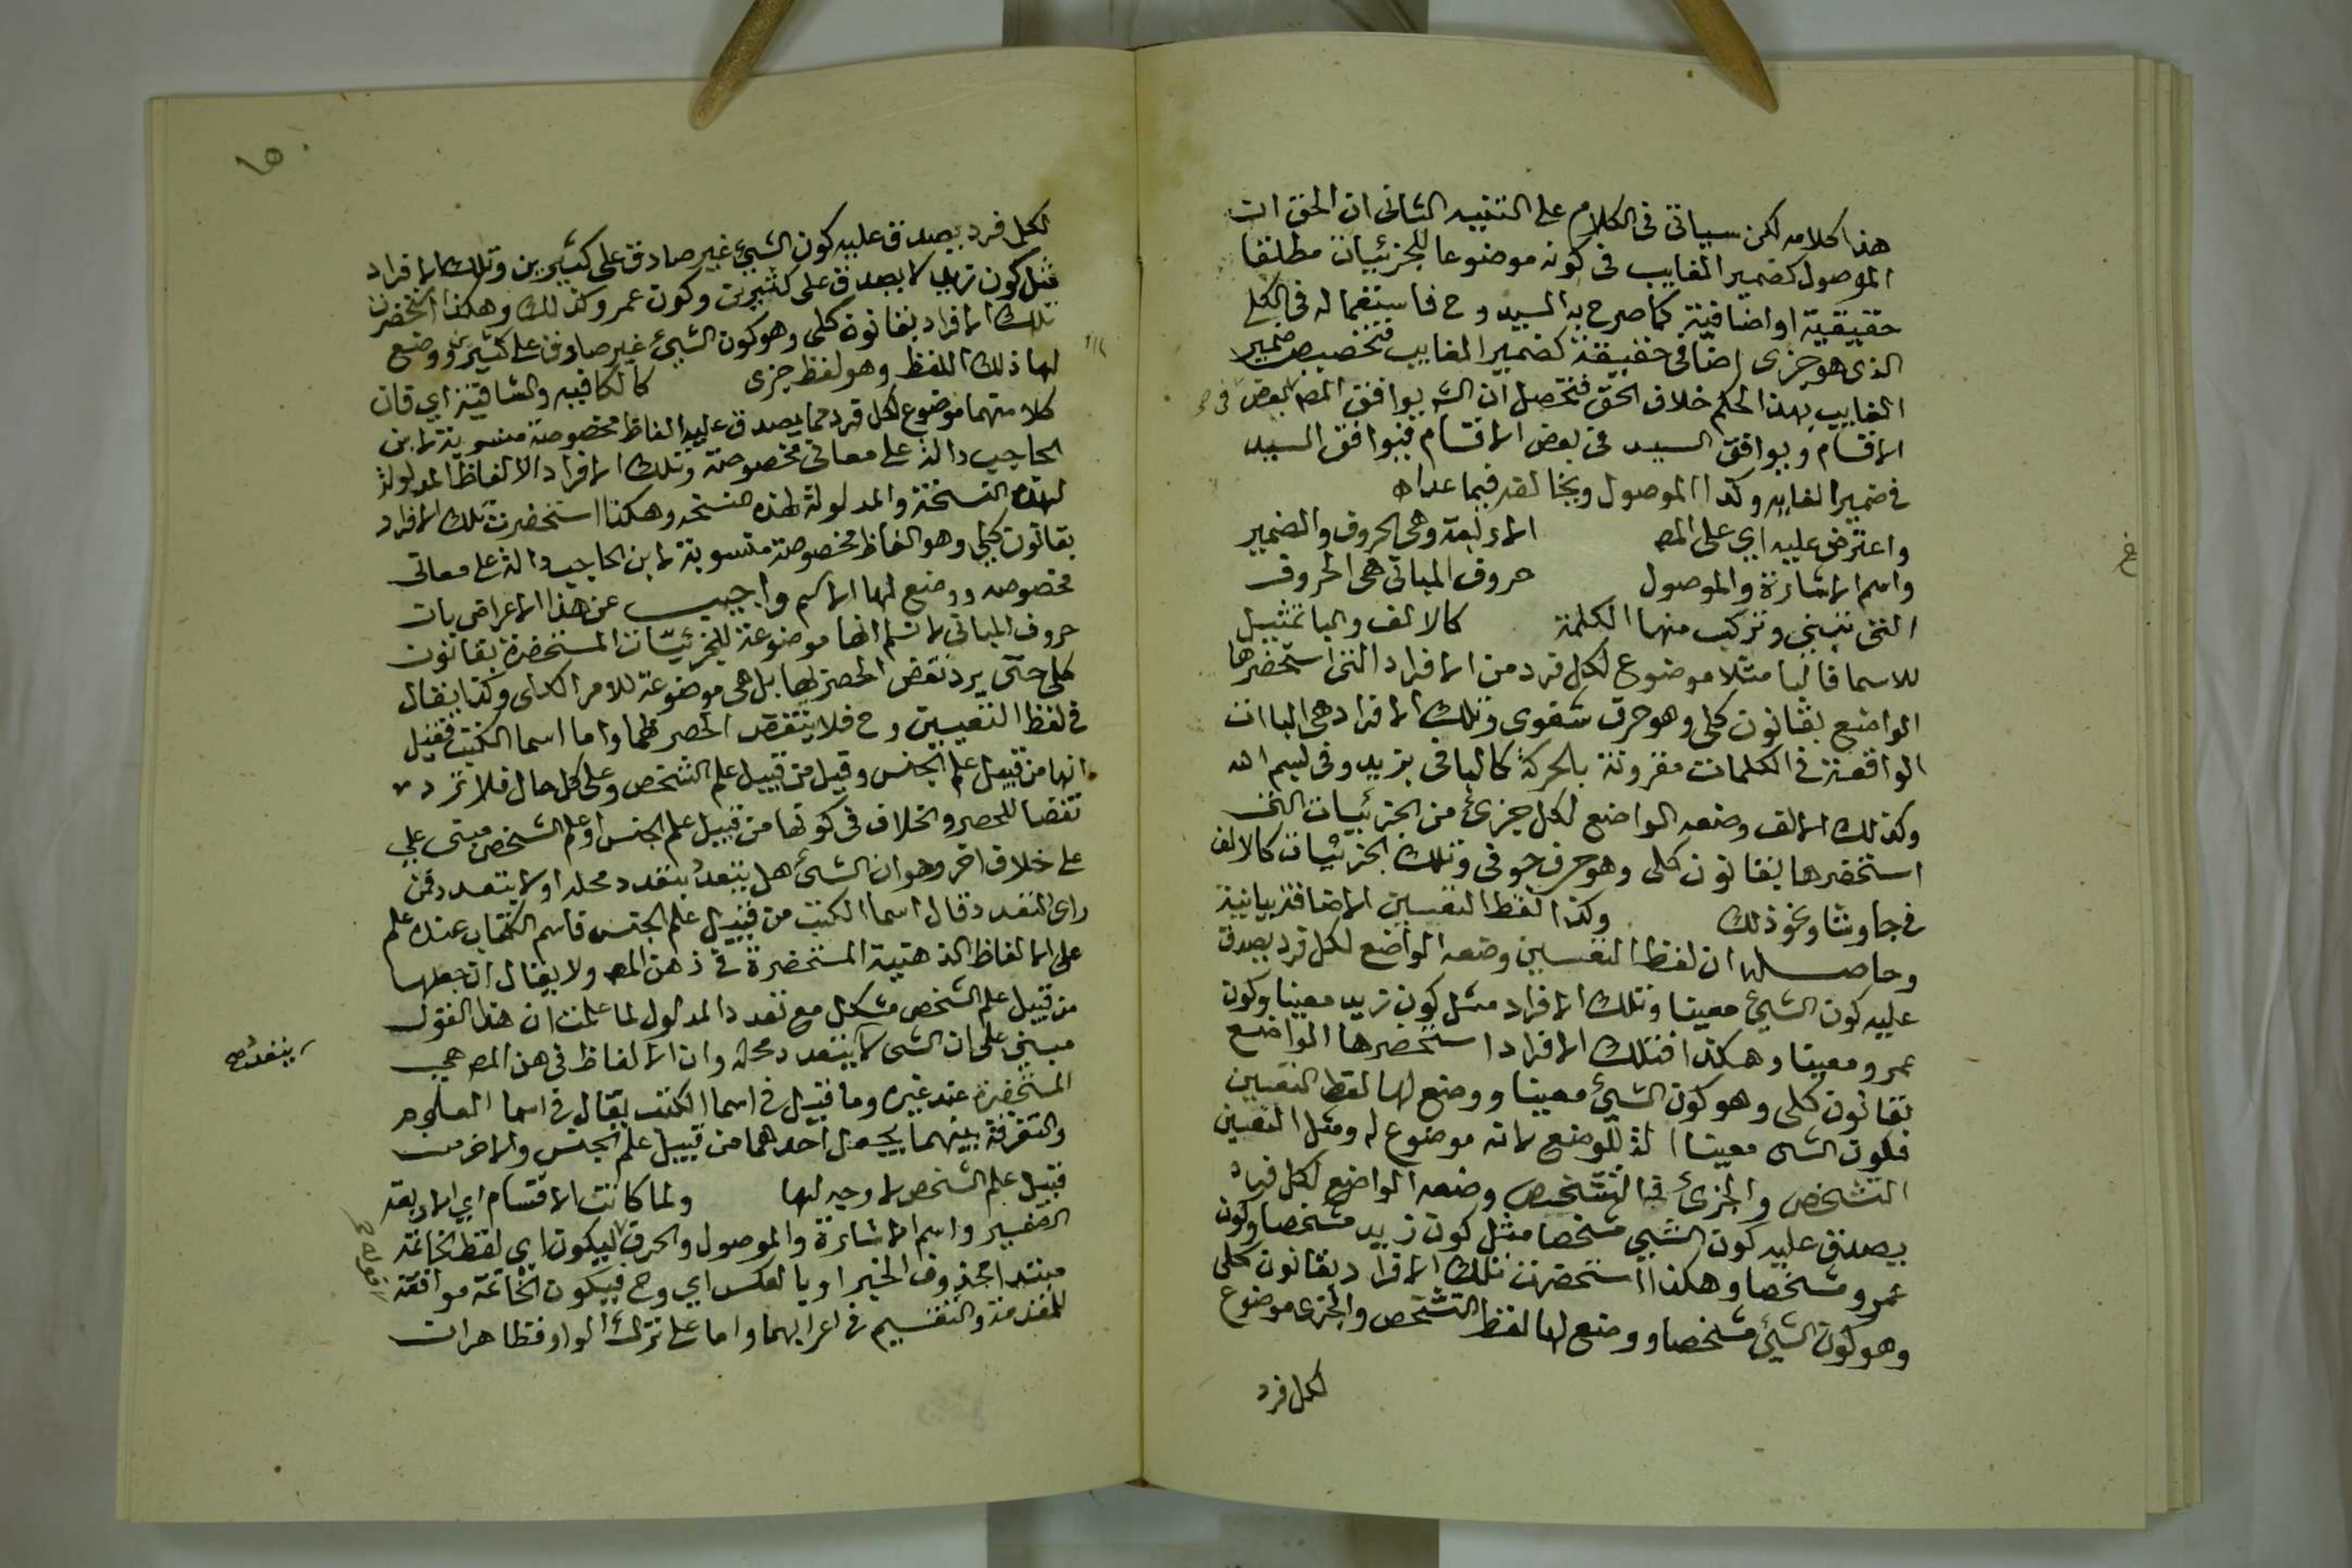 هذا كلامه لكن سياتى فى الكلام على التنبيه الثانى ان الحق ان
الموصول كضمير الغايب فى كونه موضوعا للجزئيات مطلقا
حقيقية او اضافية كما صرح به السيد وح فاستعماله فى الكلى
الذى هو جزى اضافى حقيقة كضمير الغايب فتخصيص ضمير
الغايب بهذا الحكم خلاف الحق فتحصل ان الش يوافق المص فى بعض
الاقسام ويوافق السيد فى بعض الاقسام فيوافق السيد
فى ضمير الغايب وكذا الموصول ويخالفه فيما عداه
واعترض عليه اي على المص الاربعة وهى الحروف والضمير
واسم الاشارة والموصول حروف المبانى هى الحروف
التى تبنى وتركب منها الكلمة كالالف والبا تمثيل
للاسما فالبا مثلا موضوع لكل فرد من الافراد التى استحضرها
الواضع بقانون كلى وهو حرف شفوى وتلك الافراد هى الباات
الواقعة فى الكلمات مقرونة بالحركة كالبا فى بزيد وفى بسم الله
وكذلك الالف وضعه الواضع لكل جزئ من الجزئيات التى
استحضرها بقانون كلى وهو حرف جوفى وتلك الجزئيات كالالف
فى جا وشا ونحو ذلك وكذا لفظ التعيين الاضافة بيانية
وحاصله ان لفظ التعيين وضعه الواضع لكل فرد يصدق
عليه كون الشيئ معينا وتلك الافراد مثل كون زيد معينا وكون
عمرو معينا وهكذا فتلك الافراد استحضرها الواضع
بقانون كلى وهو كون الشيئ معينا ووضع لها لفظ التعيين
فكون الشى معينا الة للوضع لا انه موضوع له ومثل التعيين
التشخص والجزئ فالتشخص وضعه الواضع لكل فرد
يصدق عليه كون الشيئ مشخصا مثل كون زيد مشخصا وكون
عمرو مشخصا وهكذا استحضرت تلك الافراد بقانون كلى
وهو كون الشيئ مشخصا ووضع لها لفظ التشخص والجزى موضوع
لكل فرد
لكل فرد يصدق عليه كون الشيئ غير صادق على كثيرين وتلك الافراد
مثل كون زيد لا يصدق على كثيرين وكون عمرو كذلك وهكذا استحضرت
تلك الافراد بقانون كلى وهو كون الشيئ غير صادق على كثيرين ووضع
لها ذلك اللفظ وهو لفظ جزى كالكافيه والشافية اي فان
كلا منهما موضوع لكل فرد مما يصدق عليه الفاظ مخصوصة منسوبة لابن
الحاجب دالة على معانى مخصوصة وتلك الافراد الالفاظ المدلولة
لهذه النسخة والمدلولة لهذه النسخه وهكذا استحضرت تلك الافراد
بقانون كلي وهو الفاظ مخصوصة منسوبة لابن الحاجب دالة على معانى
مخصوصه ووضع لها الاسم واجيب عن هذا الاعراض بان
حروف المبانى لا نسلم انها موضوعة للجزئيات المستحضرة بقانون
كلى حتى يرد نقض الحصر لها بل هى موضوعة للامر الكلى وكذا يقال
فى لفظ التعيين وح فلا ينتقض الحصر بهما واما اسما الكتب فقيل
انها من قبيل علم الجنس وقيل من قبيل علم الشخص وعلى كل حال فلا ترد
نقضا للحصر والخلاف فى كونها من قبيل علم الجنس او علم الشخص مبنى علي
على خلاف اخر وهو ان الشئ هل يتعدد بتعدد محله اولا يتعدد فمن
راى التعدد قال اسما الكتب من قبيل علم الجنس فاسم الكتاب عنده علم
على الالفاظ الذهنية المستحضرة فى ذهن المص ولا يقال ان جعلها
من قبيل علم الشخص مشكل مع تعدد المدلول لما علمت ان هذا القول
مبنى على ان الشى لا يتعدد محله وان الالفاظ فى هن المص هي
بتعدد صح
المستحضرة عند غيره وما قيل فى اسما الكتب يقال فى اسما العلوم
والتفرقة بينهما يجعل احدهما من قبيل علم الجنس والاخر من
قبيل علم الشخص لا وجه لها ولما كانت الاقسام اي الاربعة
الضمير واسم الاشارة والموصول والحرف ليكون اي لفظ الخاتمة
مبتدا محذوف الخبر او بالعكس اي وح فيكون الخاتمة موافقة
للمقدمة والتقسيم فى اعرابهما واما على ترك الواو فظاهر ان